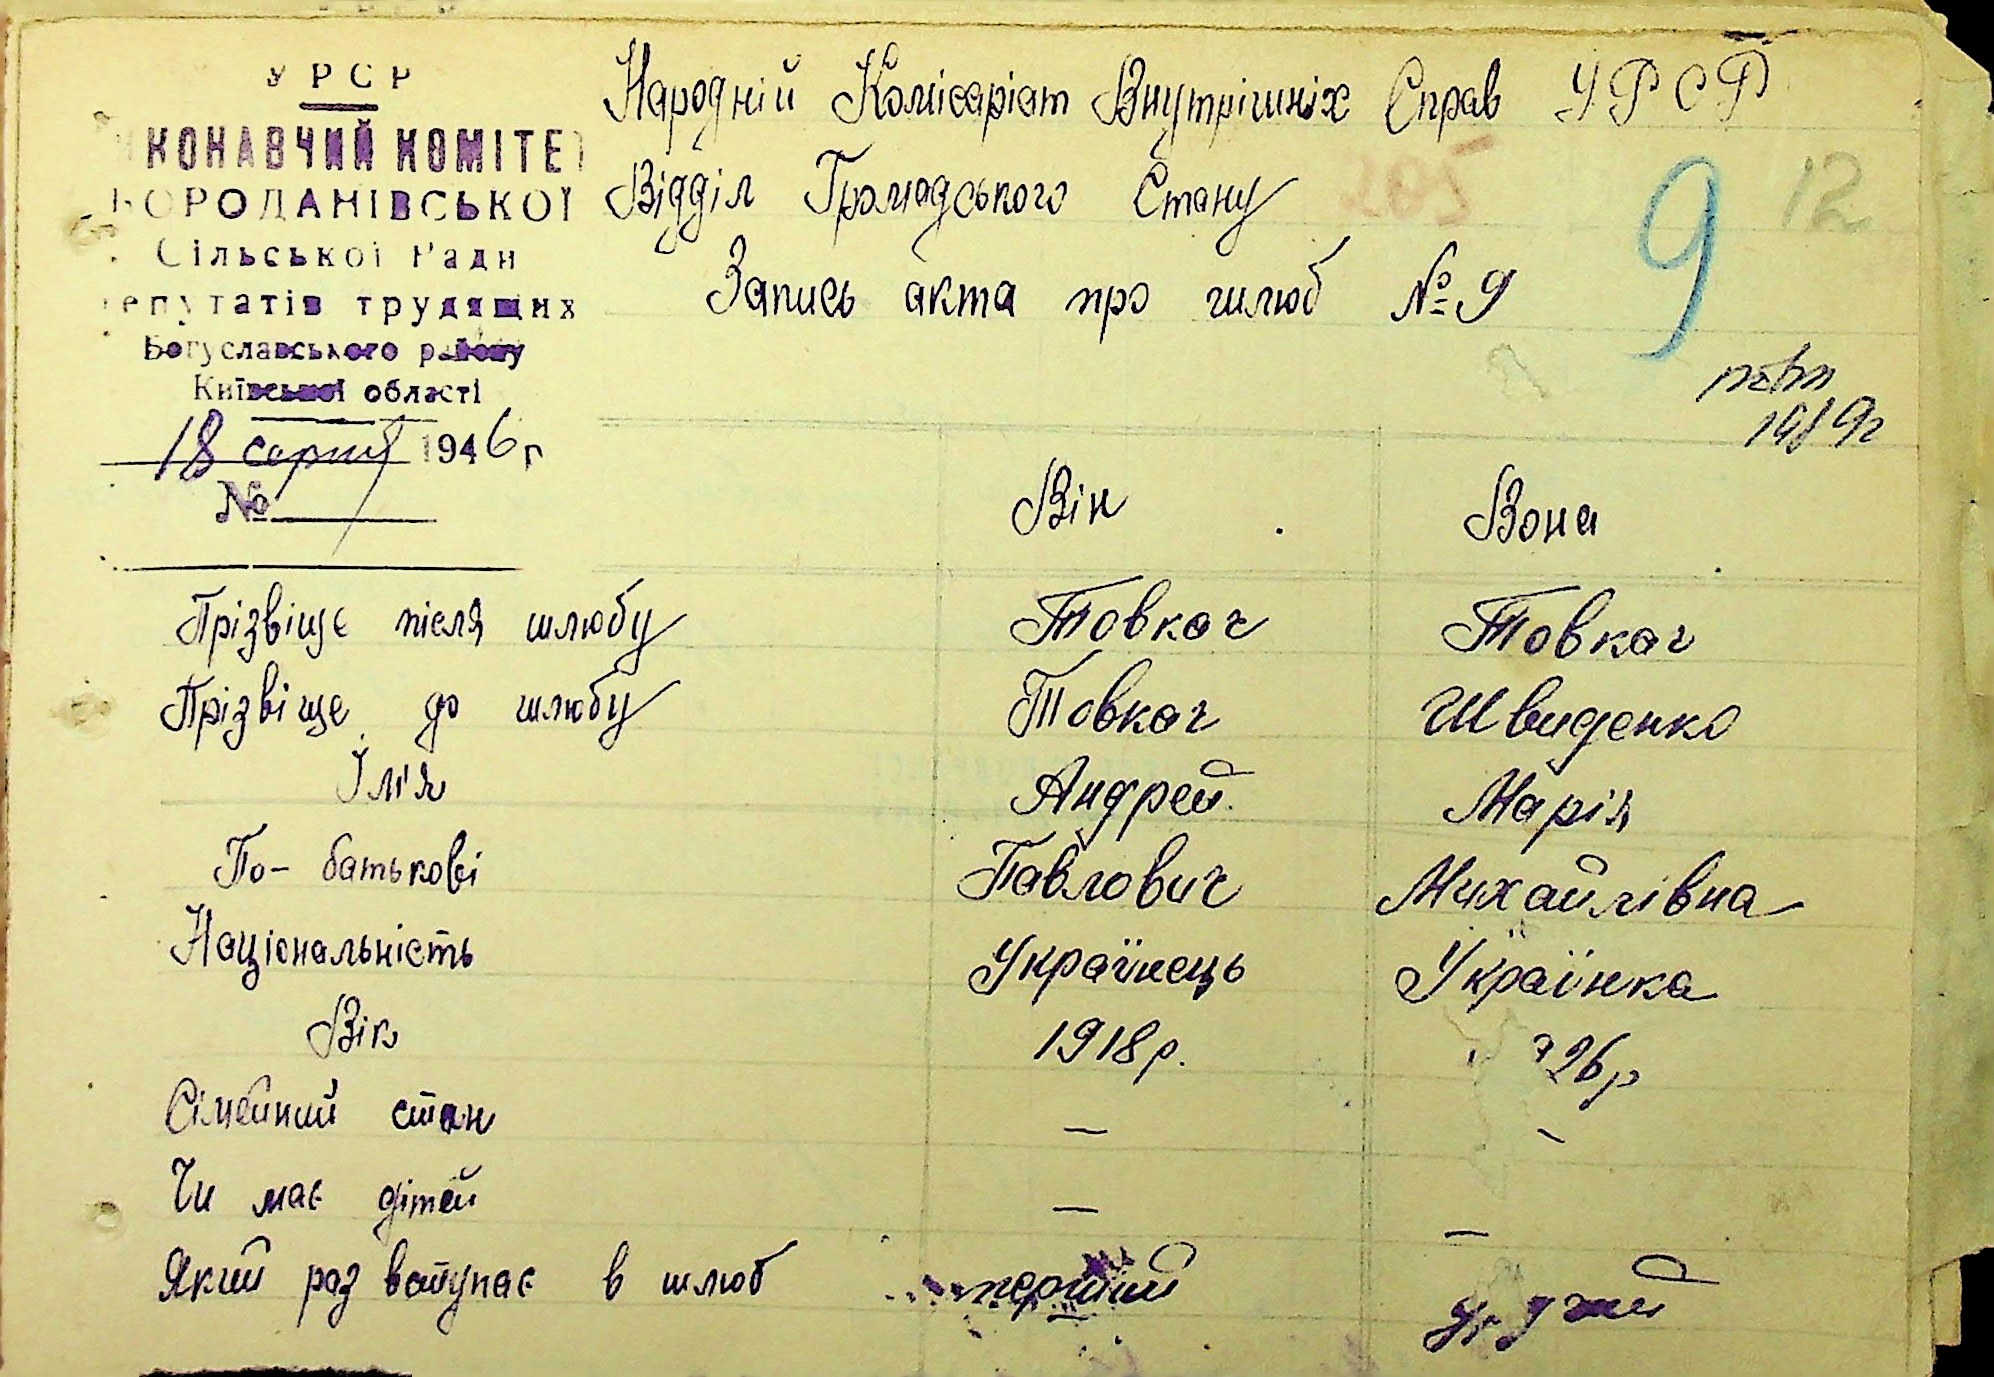 УРСР
КОНАВЧИЙ КОМІТЕ
БОРОДАНІВСЬКОЇ
Сільської Ради
епутатів трудящих
Богуславського району
Київської області
18 серпня 1946 г
№
Народній Комісаріат Внутрішніх Справ УРСР
Відділ Громадського Стану
Запись акта про шлюб № 9
9
12
Він Вона
Прізвіще після шлюбу Товкач Товкач
Прізвіще до шлюбу Товкач Швиденко
Ім'я Андрей Марія
По-батькові Павлович Михайлівна
Національність Українець Українка
Вік 1918 р. 26 р
Сімейний стан — –
Чи має дітей — —
Який раз вступає в шлюб перший другий